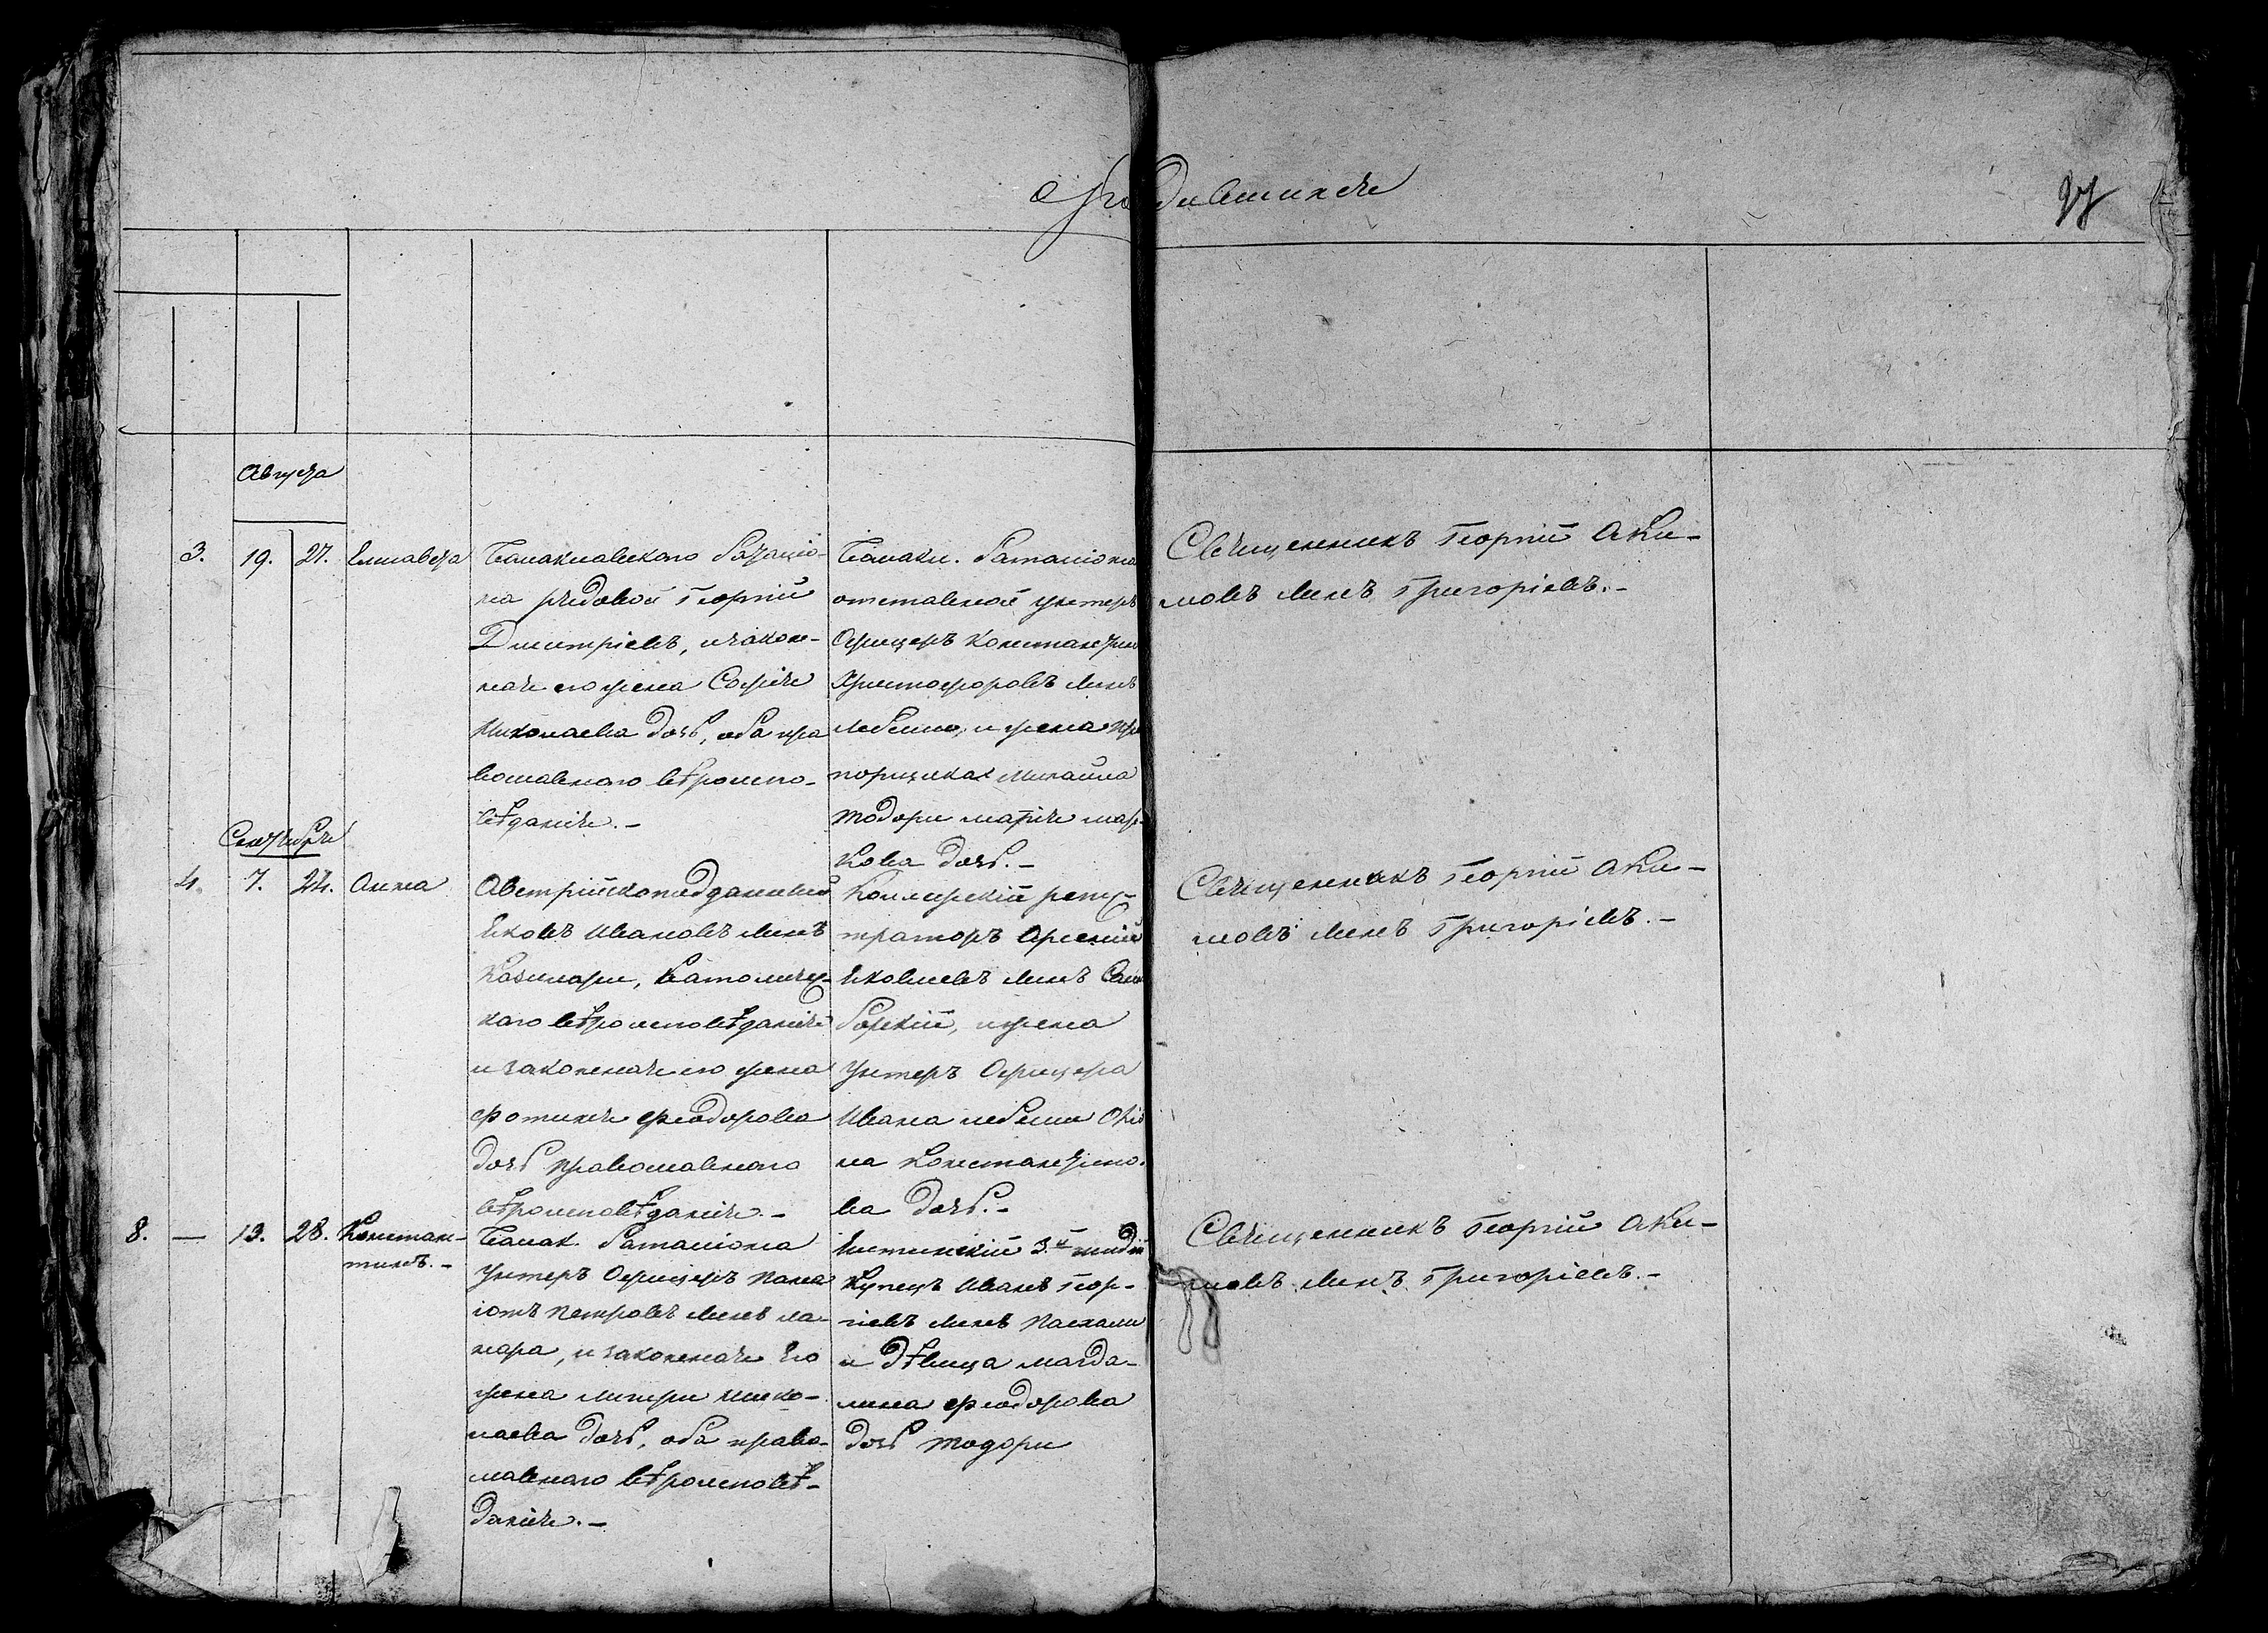 о родившихся
27
Августа
3. 19. 27. Елисавета
Балаклавскаго баталіо-
на рядовой Георгій
Димитріевъ, и закон-
ная его жена Софія
Николаева дочь, оба пра
вославнаго вѣроиспо-
вѣданія. –
Балакл. баталіона
отставной унтеръ
Офицеръ Константинъ
Христофоровъ сынъ
и жена
порщика Михаила
Тодори Марія Мар-
кова дочь. –
Священникъ Георгій Аки-
мовъ сынъ Григоріевъ. –
Сентября
4. 7. 24. Анна
Австрійскоподданный
Яковъ Ивановъ сынъ
католичес-
каго вѣроисповѣданія
и законная его жена
Фотинія Феодорова
дочь православнаго
вѣроисповѣданія. –
Коллежскій регис-
траторъ Арсеній
Яковлевъ сынъ
и жена
Унтеръ Офицера
Ивана
на Константино-
ва дочь. –
Священникъ Георгій Аки-
мовъ сынъ Григоріевъ. –
8. — 13. 28. Констан-
тинъ. –
Балак. баталіона
Унтеръ Офицеръ Пана
іотъ Петровъ сынъ
и законная его
жена Нико-
лаева дочь, оба право-
славнаго вѣроисповѣ-
данія. –
3.й гильдіи
Купецъ Иванъ Геор-
гіевъ сынъ Пасхали
и дѣвица Магда-
лина Феодорова
дочь Тодори
Священникъ Георгій Аки-
мовъ сынъ Григоріевъ. –